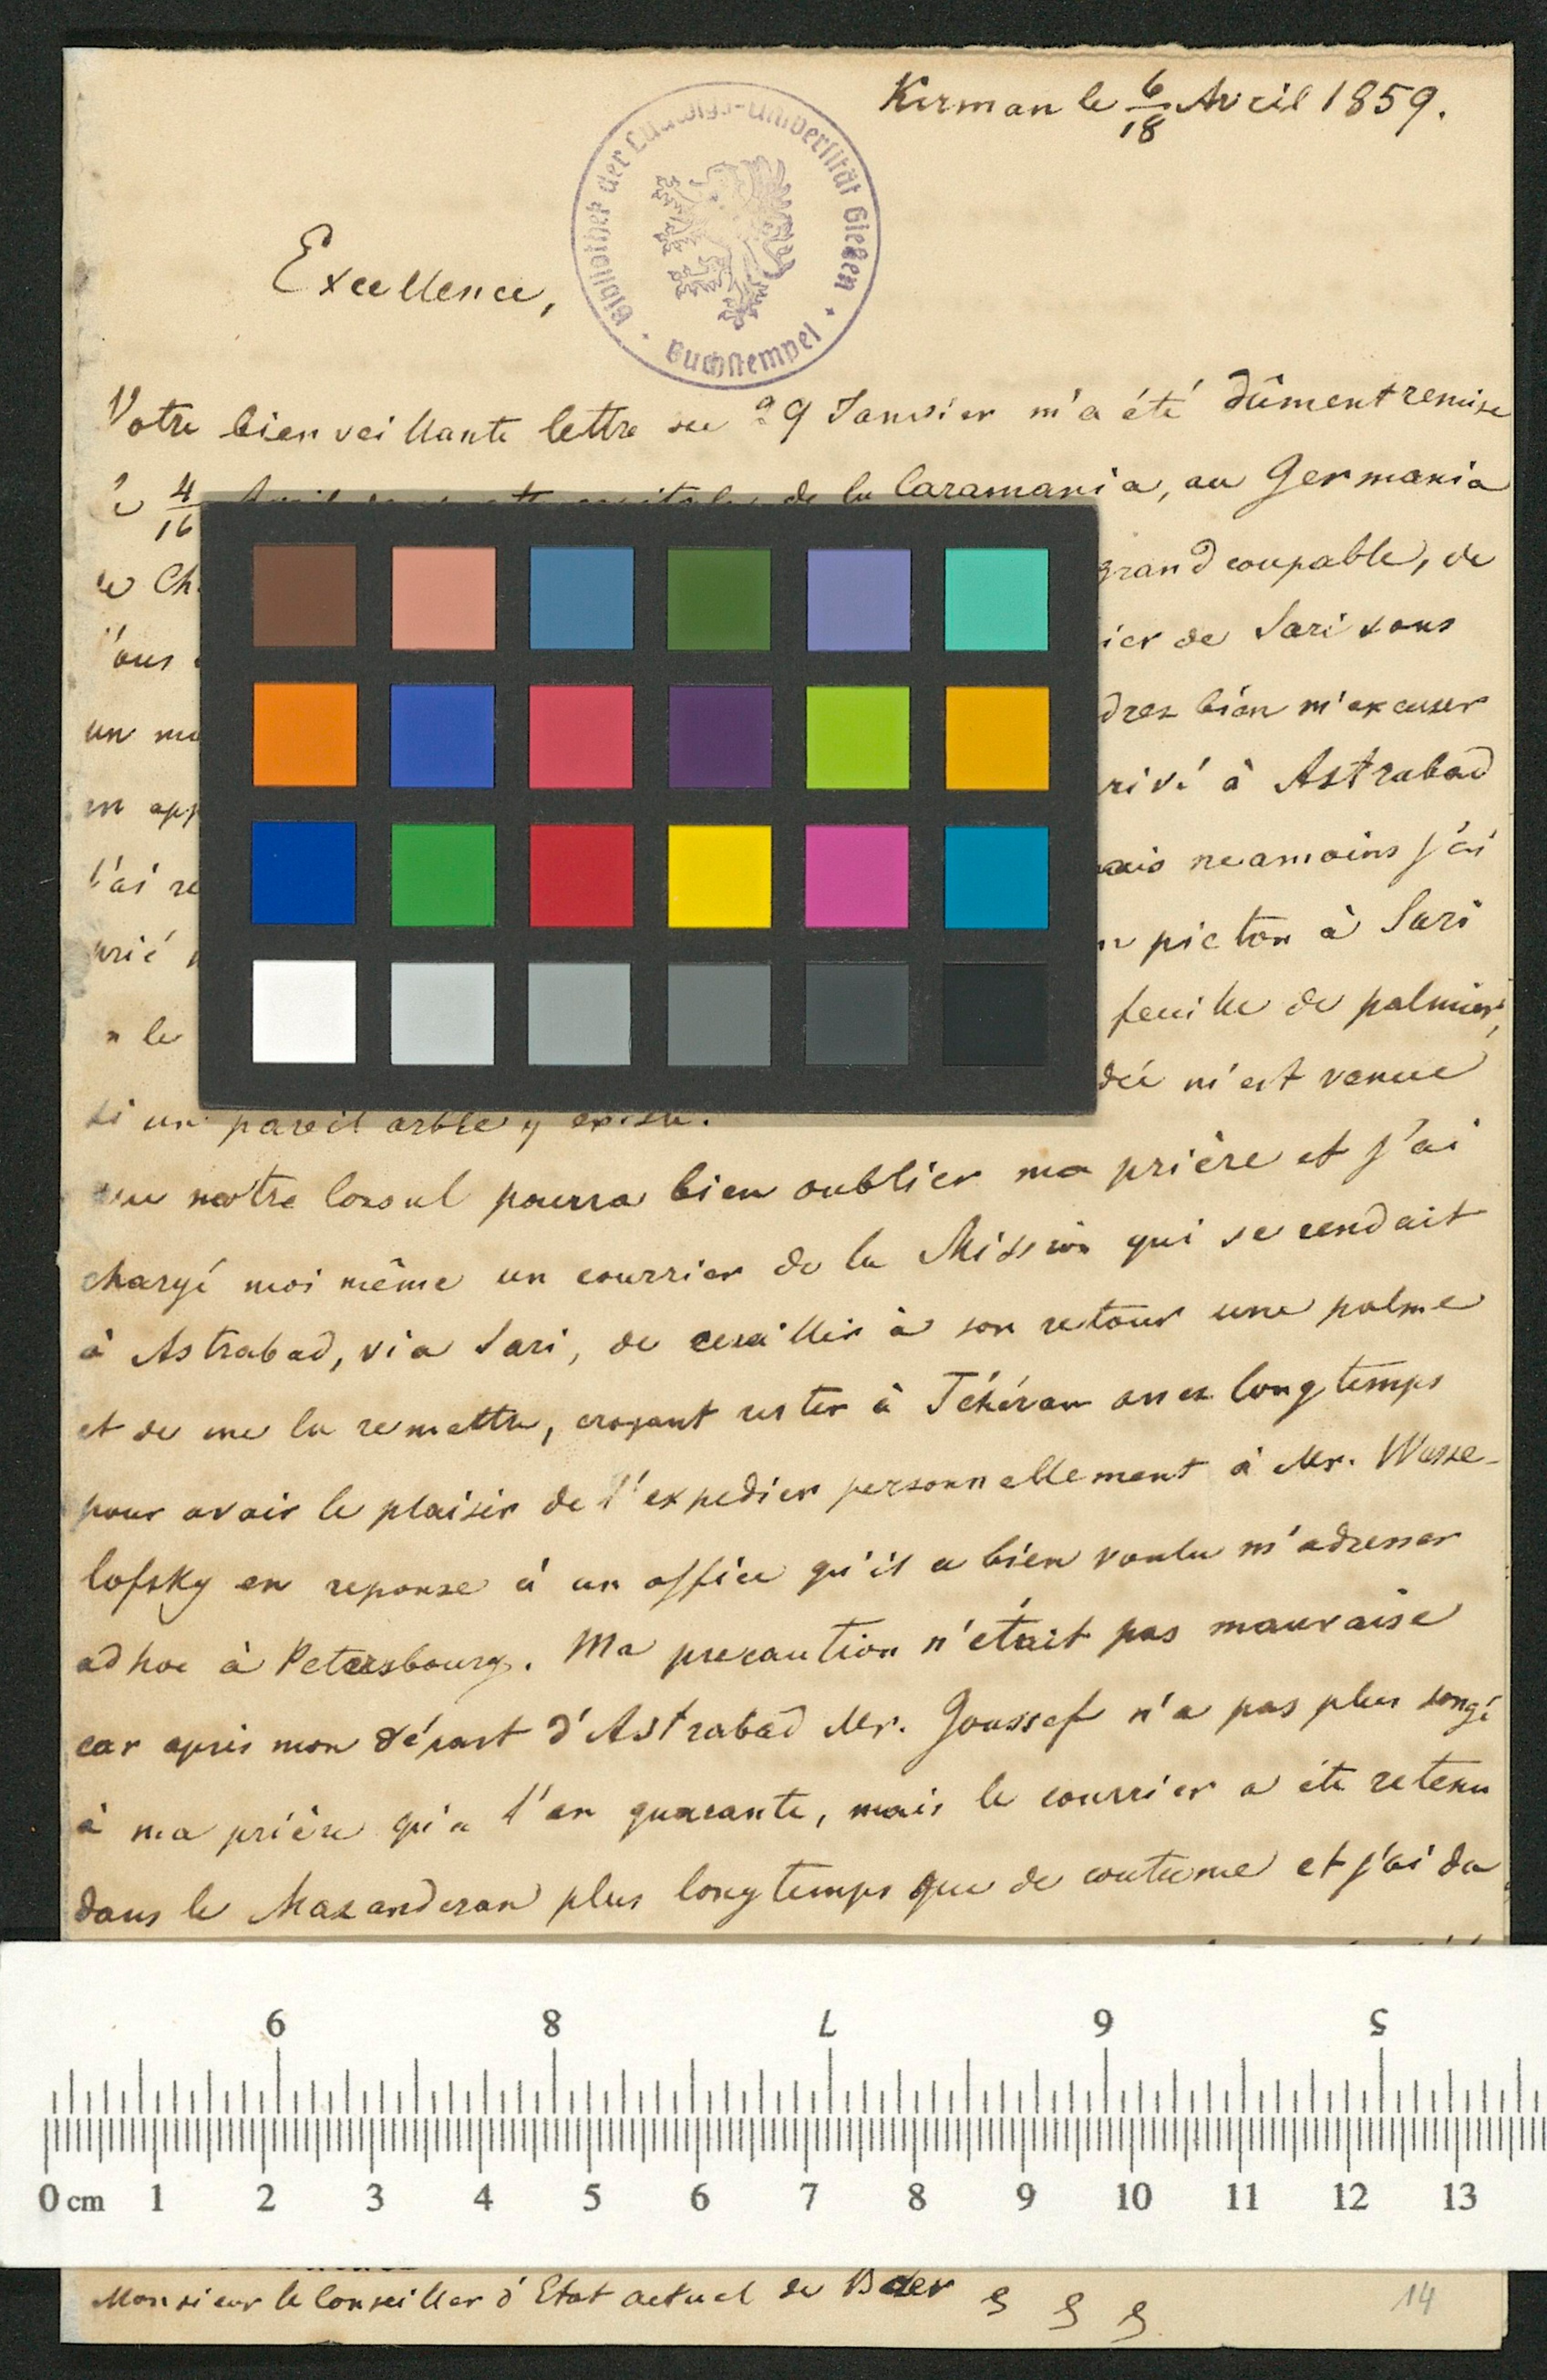 Kerman le 6/18 Avril 1859.
Bibliothek der Ludwigs-Universität Gießen · Buchstempel ·
Excellence,
Votre bienveillante lettre du 9 Janvier m'a été dûment remise
4/16 de la Caramania, au Germania
de Ch grand coupable, de
ier de Sari sans
un mo drez bien m'excuser
en app rivé à Astrabad
l'ai re mais neamoins j'ai
prié n picton à Sari
le feuille de palmier,
si un pareil arbre y existe. dée m'est venue
que notre Consul pourra bien oublier ma prière et j'ai
chargé moi même un courrier de la Mission qui se rendait
à Astrabad, via Sari, de cueillir à son retour une palme
et de me la remettre, croyant rester à Téhéran assez longtemps
pour avoir le plaisir de l'expedier personnellement à Mr. Wesse-
lofsky en reponse à un office qu'il a bien voulu m'adresser
ad hoc à Petersbourg. Ma precaution n'était pas mauvaise
car après mon départ d'Astrabad Mr. Goussef n'a pas plus songé
à ma prière qu'a l'an quarante, mais le courrier a été retenu
dans le Mazanderan plus longtemps que de coutume et j'ai du
9 8 7 6 5
0 cm 1 2 3 4 5 6 7 8 9 10 11 12 13
Monsieur le Conseiller d'Etat actuel de Baer
14